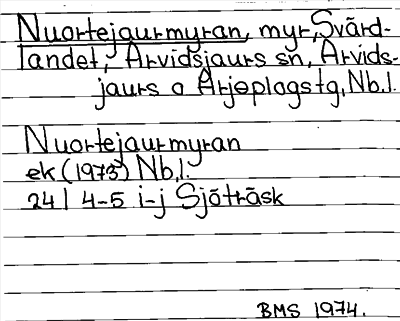 Nuortejaurmyran, myr, Svärd-
landet, Arvidsjaurs sn, Arvids-
jaurs o Arjeplogs tg, Nb.l.
Nuortejaurmyran
ek (1973) Nb.l.
24 I 4-5 i-j Sjöträsk
BMS 1974.